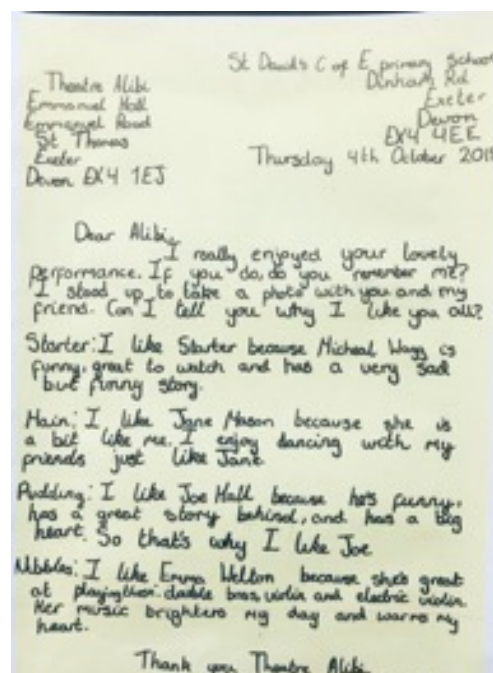 St David's C of E primary School
Dinham Rd
Exeter
Devon
EX4 4EE
Thursday 4th October 2018
Theatre Alibi
Emmanuel Hall
Emmanuel Road
St Thomas
Exeter
Devon EX4 1EJ
Dear Alibi,
I really enjoyed your lovely
performance. If you do, do you remember me?
I stood up to take a photo with you and my
friend. Can I tell you why I like you all?
Starter: I like Starter because Micheal Wagg is
funny, great to watch and has a very sad
but funny story.
Main: I like Jane Mason because she is
a bit like me. I enjoy dancing with my
friends just like Jane
Pudding: I like Joe Hall because he's funny,
has a great story behind, and has a big
heart. So that's why I like Joe
Nibbles: I like Emma Welton because she's great
at playing double bass, violin and electric violin.
Her music brighters my day and warms my
heart.
Thank you Theatre Alibi